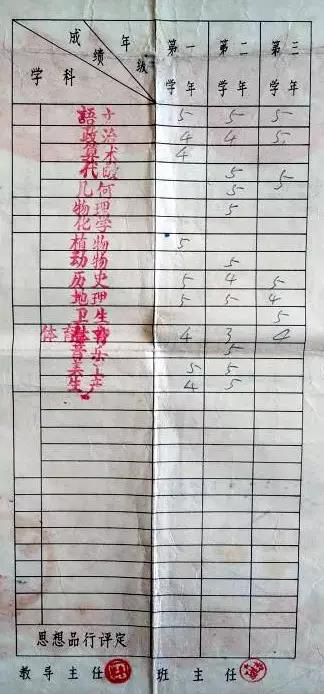 成绩 年级 学科 第一学年 第二学年 第三学年
語文 5 5 5
政治 4 4 5
算术 4
代数 5 5
几何 5 5
物理 5
化学
植物 5
动物 5
历史 5 4 5
地理 5 5 4
卫生 5
体育 4 3 4
音乐 5
5 5
生产 4 5
思想品行评定
教导主任 班主任